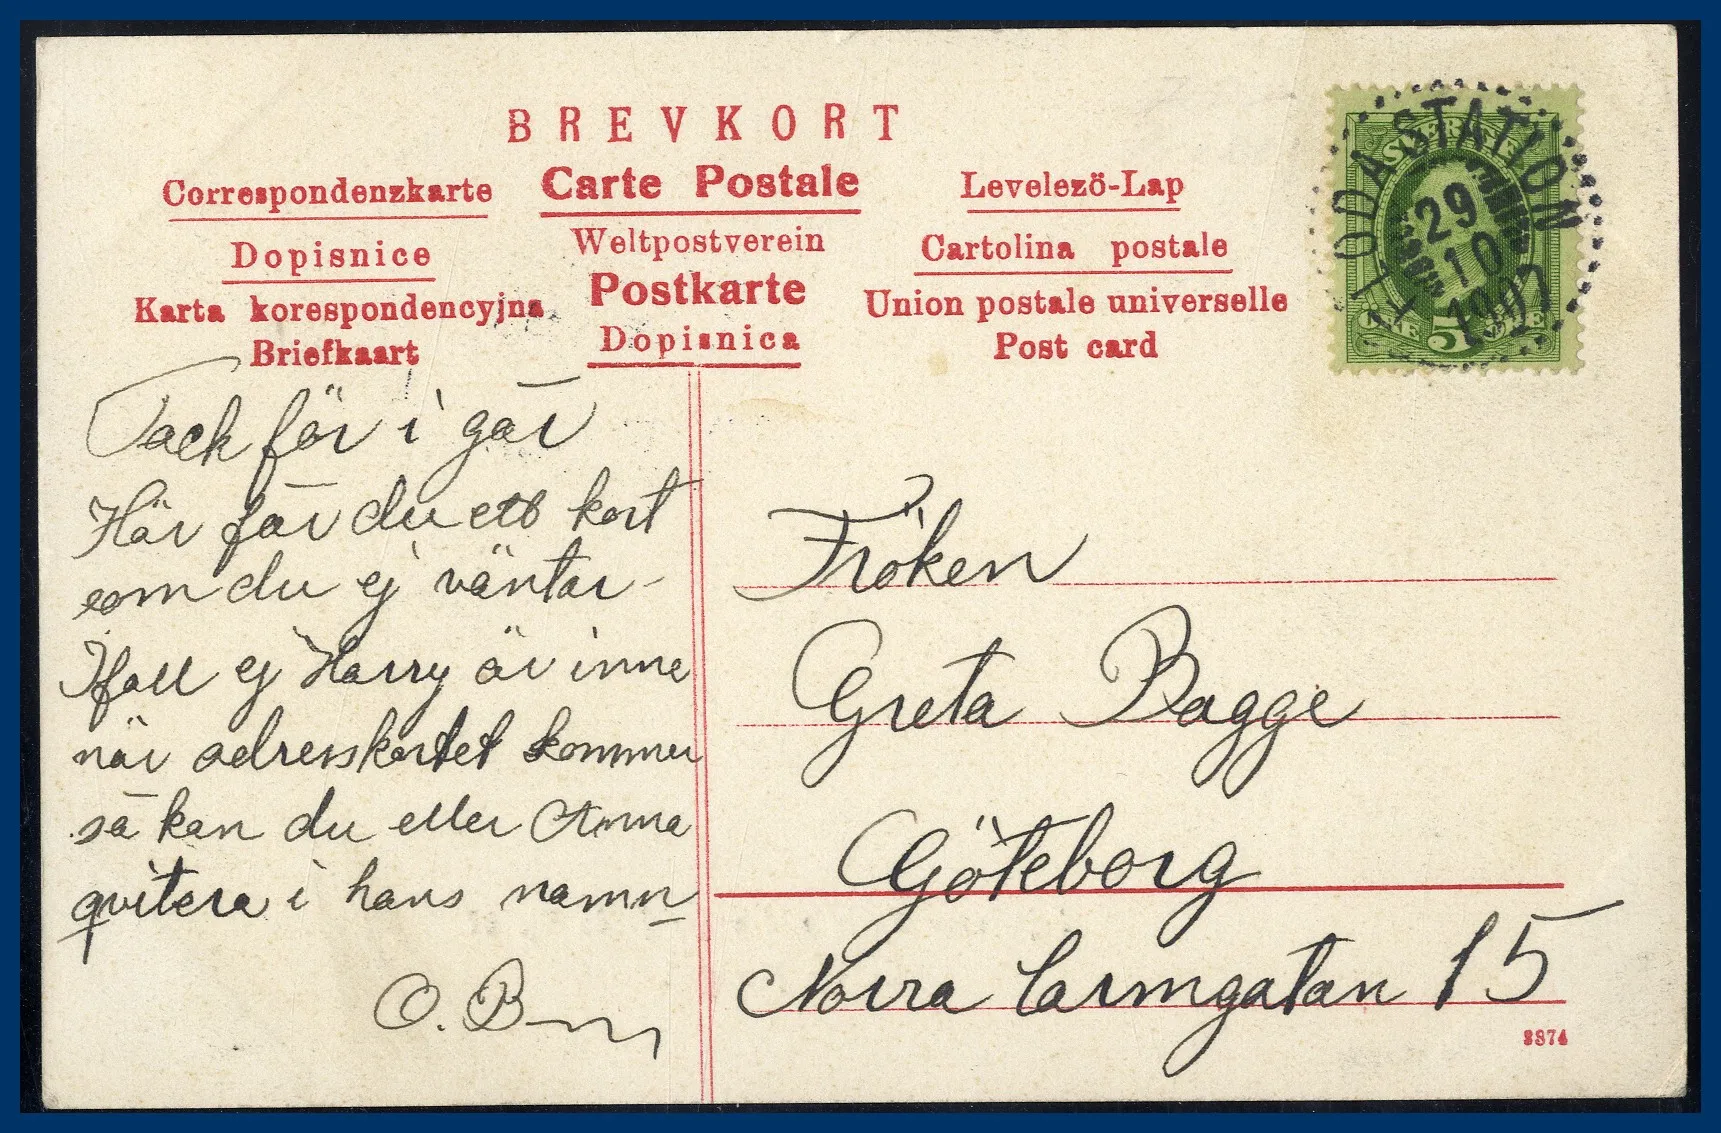 BREVKORT
Correspondenzkarte
Carte Postale
Levelezö-Lap
Dopisnice
Weltpostverein
Cartolina postale
Karta korespondencyjna
Postkarte
Union postale universelle
Briefkaart
Dopisnica
Post card
FLODA STATION
29
10
1907
SVERIGE
5
Tack för i går
Här får du ett kort
som du ej väntar
Ifall ej Harry är inne
när adresskortet kommer
så kan du eller Anna
qvitera i hans namn
O. B
Fröken
Greta Bagge
Göteborg
Norra Larmgatan 15
3874